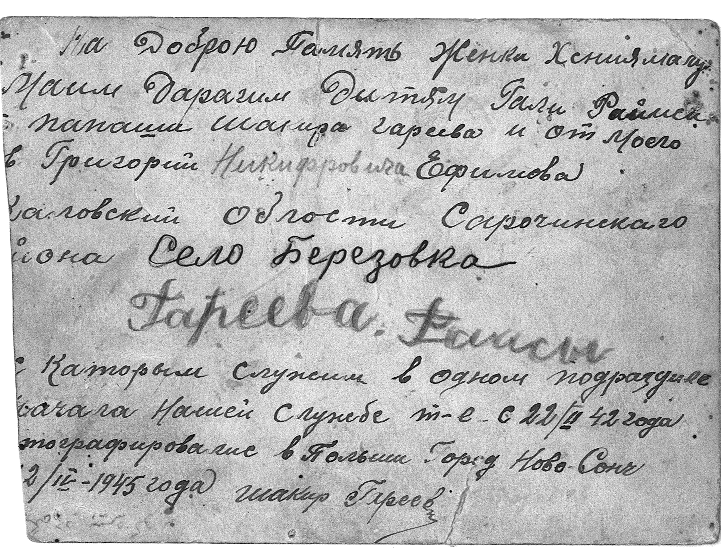 На Доброю Память Женки Хениямалу
Маим Дарагим Дытям Гали Раииси
папаши Шакира Гареева и от Моего
в Григорий Никифровича Ефимова
каловский области Сарочинскаго
иона Село Березовка
Гареева. Раисы
с Каторым служим в одном подразделе
начала Нашей Службе т-е с 22/II 42 года
тографировалис в Польши Город Ново-Сонч
2/IV-1945 года шакир Гареев